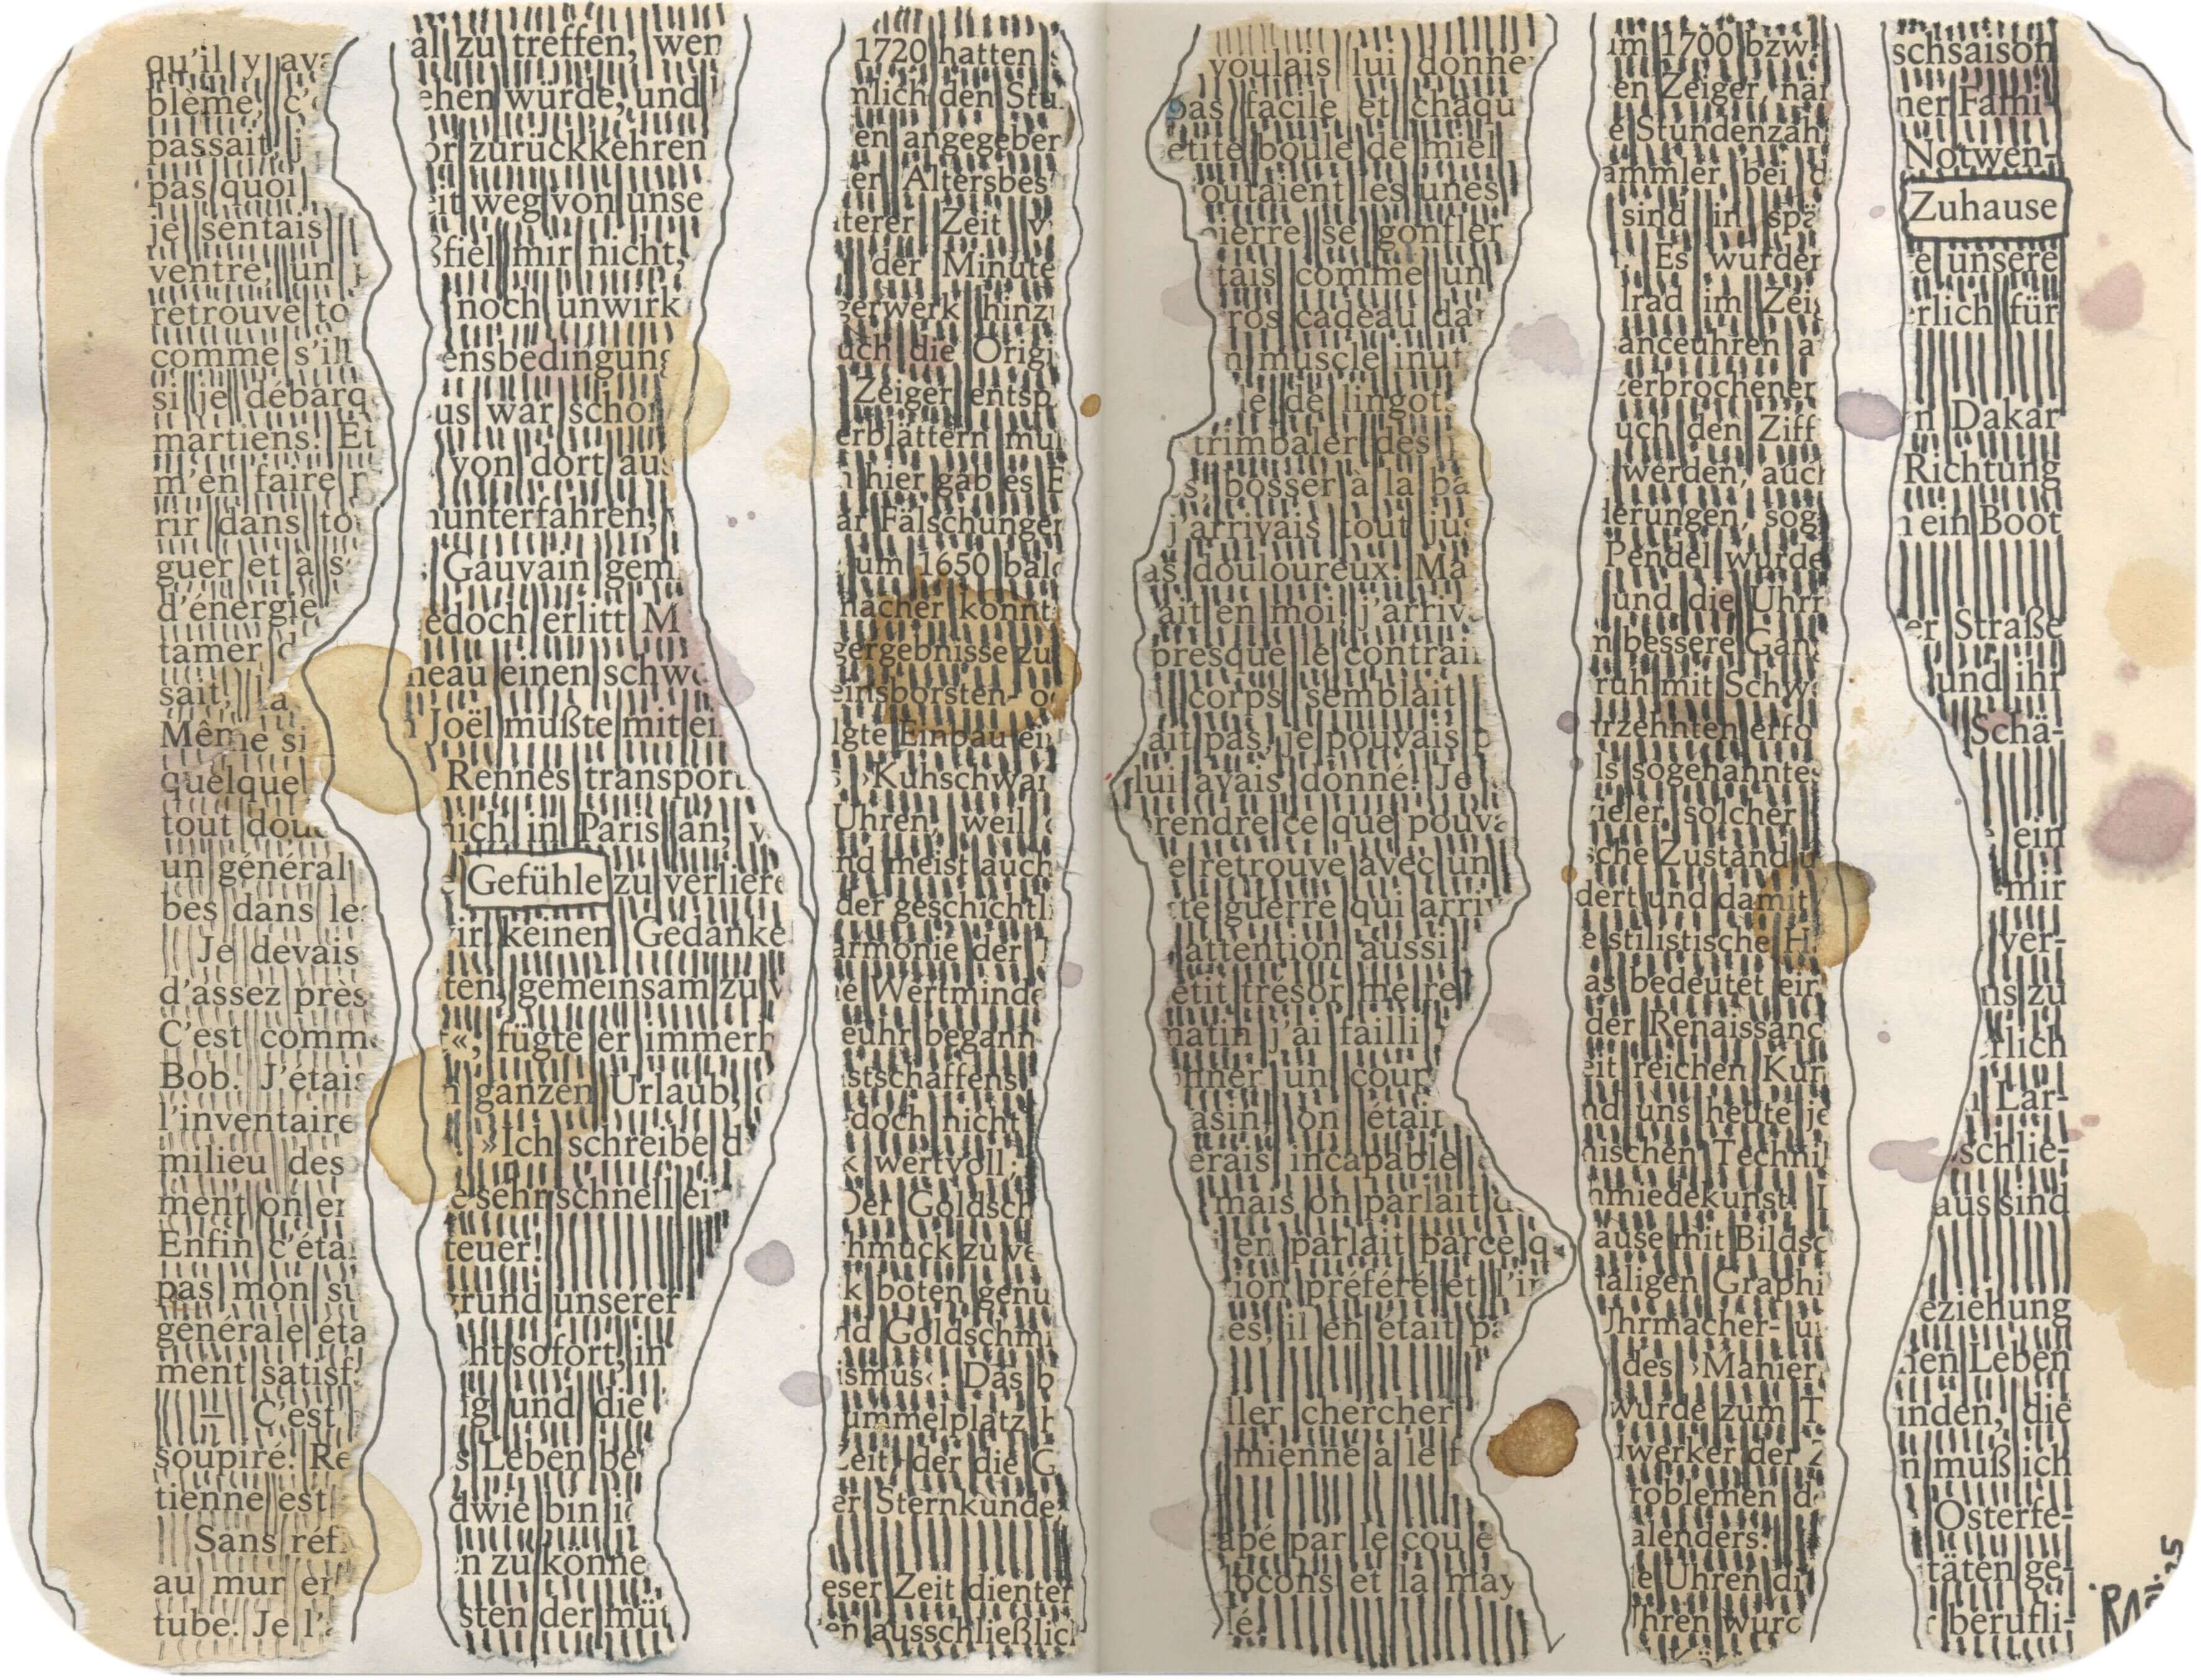 qu'il y ava
blème, c'e
passait, j
pas quoi
je sentais
ventre, un p
retrouve to
comme s'il
si je débarq
martiens. Et
m'en faire p
rir dans to
guer et à s
d'énergie
tamer d
sait, la
Même si
quelque
tout douc
un général
bes dans les
Je devais
d'assez près
C'est comm
Bob. J'étais
l'inventaire
milieu des
ment on er
Enfin c'étai
pas mon su
générale éta
ment satisf
— C'est
soupiré. Re
tienne est
Sans réf
au mur en
tube. Je l'a
al zu treffen, wen
ehen würde, und
or zurückkehren
eit weg von unse
ßfiel mir nicht,
noch unwirk
ensbedingung
us war schon
von dort aus
hunterfahren,
Gauvain gem
edoch erlitt M
neau einen schwe
n Joël mußte mit ei
Rennes transport
mich in Paris an, w
e Gefühle zu verliere
ir keinen Gedanke
ten, gemeinsam zu v
«, fügte er immerh
n ganzen Urlaub, d
»Ich schreibe d
e sehr schnell ein
teuer!
grund unserer
ht sofort, in
ig und die
s Leben be
dwie bin ic
n zu könne
sten der müt
1720 hatten s
nlich den Stu
en angegeben
en Altersbes
äterer Zeit v
der Minute
gerwerk hinzu
uch die Origi
Zeiger entsp
erblättern mu
n hier gab es E
ar Fälschungen
um 1650 bald
macher konnt
gergebnisse zu
einsborsten- o
lgte Einbau ein
s ›Kuhschwan
Uhren, weil d
nd meist auch
der geschichtli
armonie der
e Wertminde
euhr begann
stschaffens
doch nicht
k wertvoll;
Der Goldsch
hmuck zu ve
k boten genü
nd Goldschmi
ismus‹. Das b
ummelplatz h
Zeit, der die G
er Sternkunde,
eser Zeit dienten
en ausschließlich
voulais lui donner
pas facile et chaqu
etite boule de miel
outaient les unes
pierre se gonfler
tais comme un
ros cadeau da
n muscle inut
le de lingots
trimbaler des l
s, bosser à la ba
j'arrivais tout jus
as douloureux. Ma
ait en moi, j'arriv
presque le contrair
corps semblait
ait pas, je pouvais p
lui avais donné. Je
rendre ce que pouva
e retrouve avec un
te guerre qui arriv
attention aussi
etit trésor me re
matin j'ai failli
onner un coup
asin, on était
erais incapable
mais on parlait d
en parlait parce q
ion préféré et l'in
es, il en était pa
ller chercher
mienne à le f
apé par le cou e
ocons et la may
lé.
um 1700 bzw.
en Zeiger, näm
e Stundenzah
ammler bei d
sind in spä
Es wurden
lrad im Zeig
anceuhren a
zerbrochener
uch den Ziff
werden, auch
derungen, sog
Pendel wurde
und die Uhr
n bessere Gan
ruh mit Schw
hrzehnten erfo
ls sogenannte
vieler solcher
sche Zustand u
dert und damit
e stilistische H
as bedeutet ein
der Renaissanc
eit reichen Kun
nd uns heute je
nischen Techni
hmiedekunst. I
äuse mit Bildsc
maligen Graphi
Uhrmacher- un
des ›Manier
wurde zum T
dwerker der Z
roblemen d
alenders.
e Uhren di
Uhren wurd
schsaison
ner Fami-
Notwen-
Zuhause
e unsere
erlich für
n Dakar
Richtung
n ein Boot
er Straße
und ihr
Schä-
ein
mir
ver-
ns zu
rlich
Lar-
schlie-
aus sind
eziehung
nen Leben
inden, die
n muß ich
Osterfe-
täten ge-
berufli-